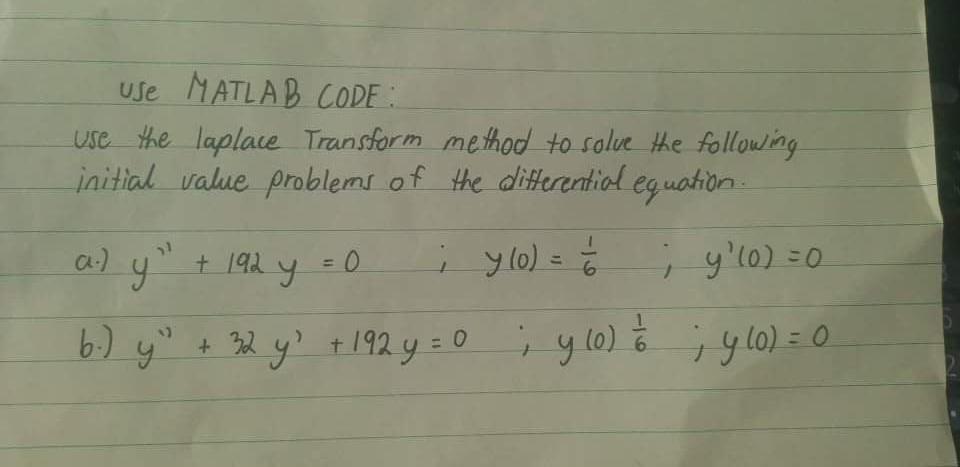 use MATLAB CODE:
use the laplace Transform method to solve the following
initial value problems of the differential equation.
a.) y'' + 192 y = 0 ; y(0) = 1/6 ; y'(0) = 0
b.) y'' + 32 y' + 192 y = 0 ; y(0) 1/6 ; y(0) = 0